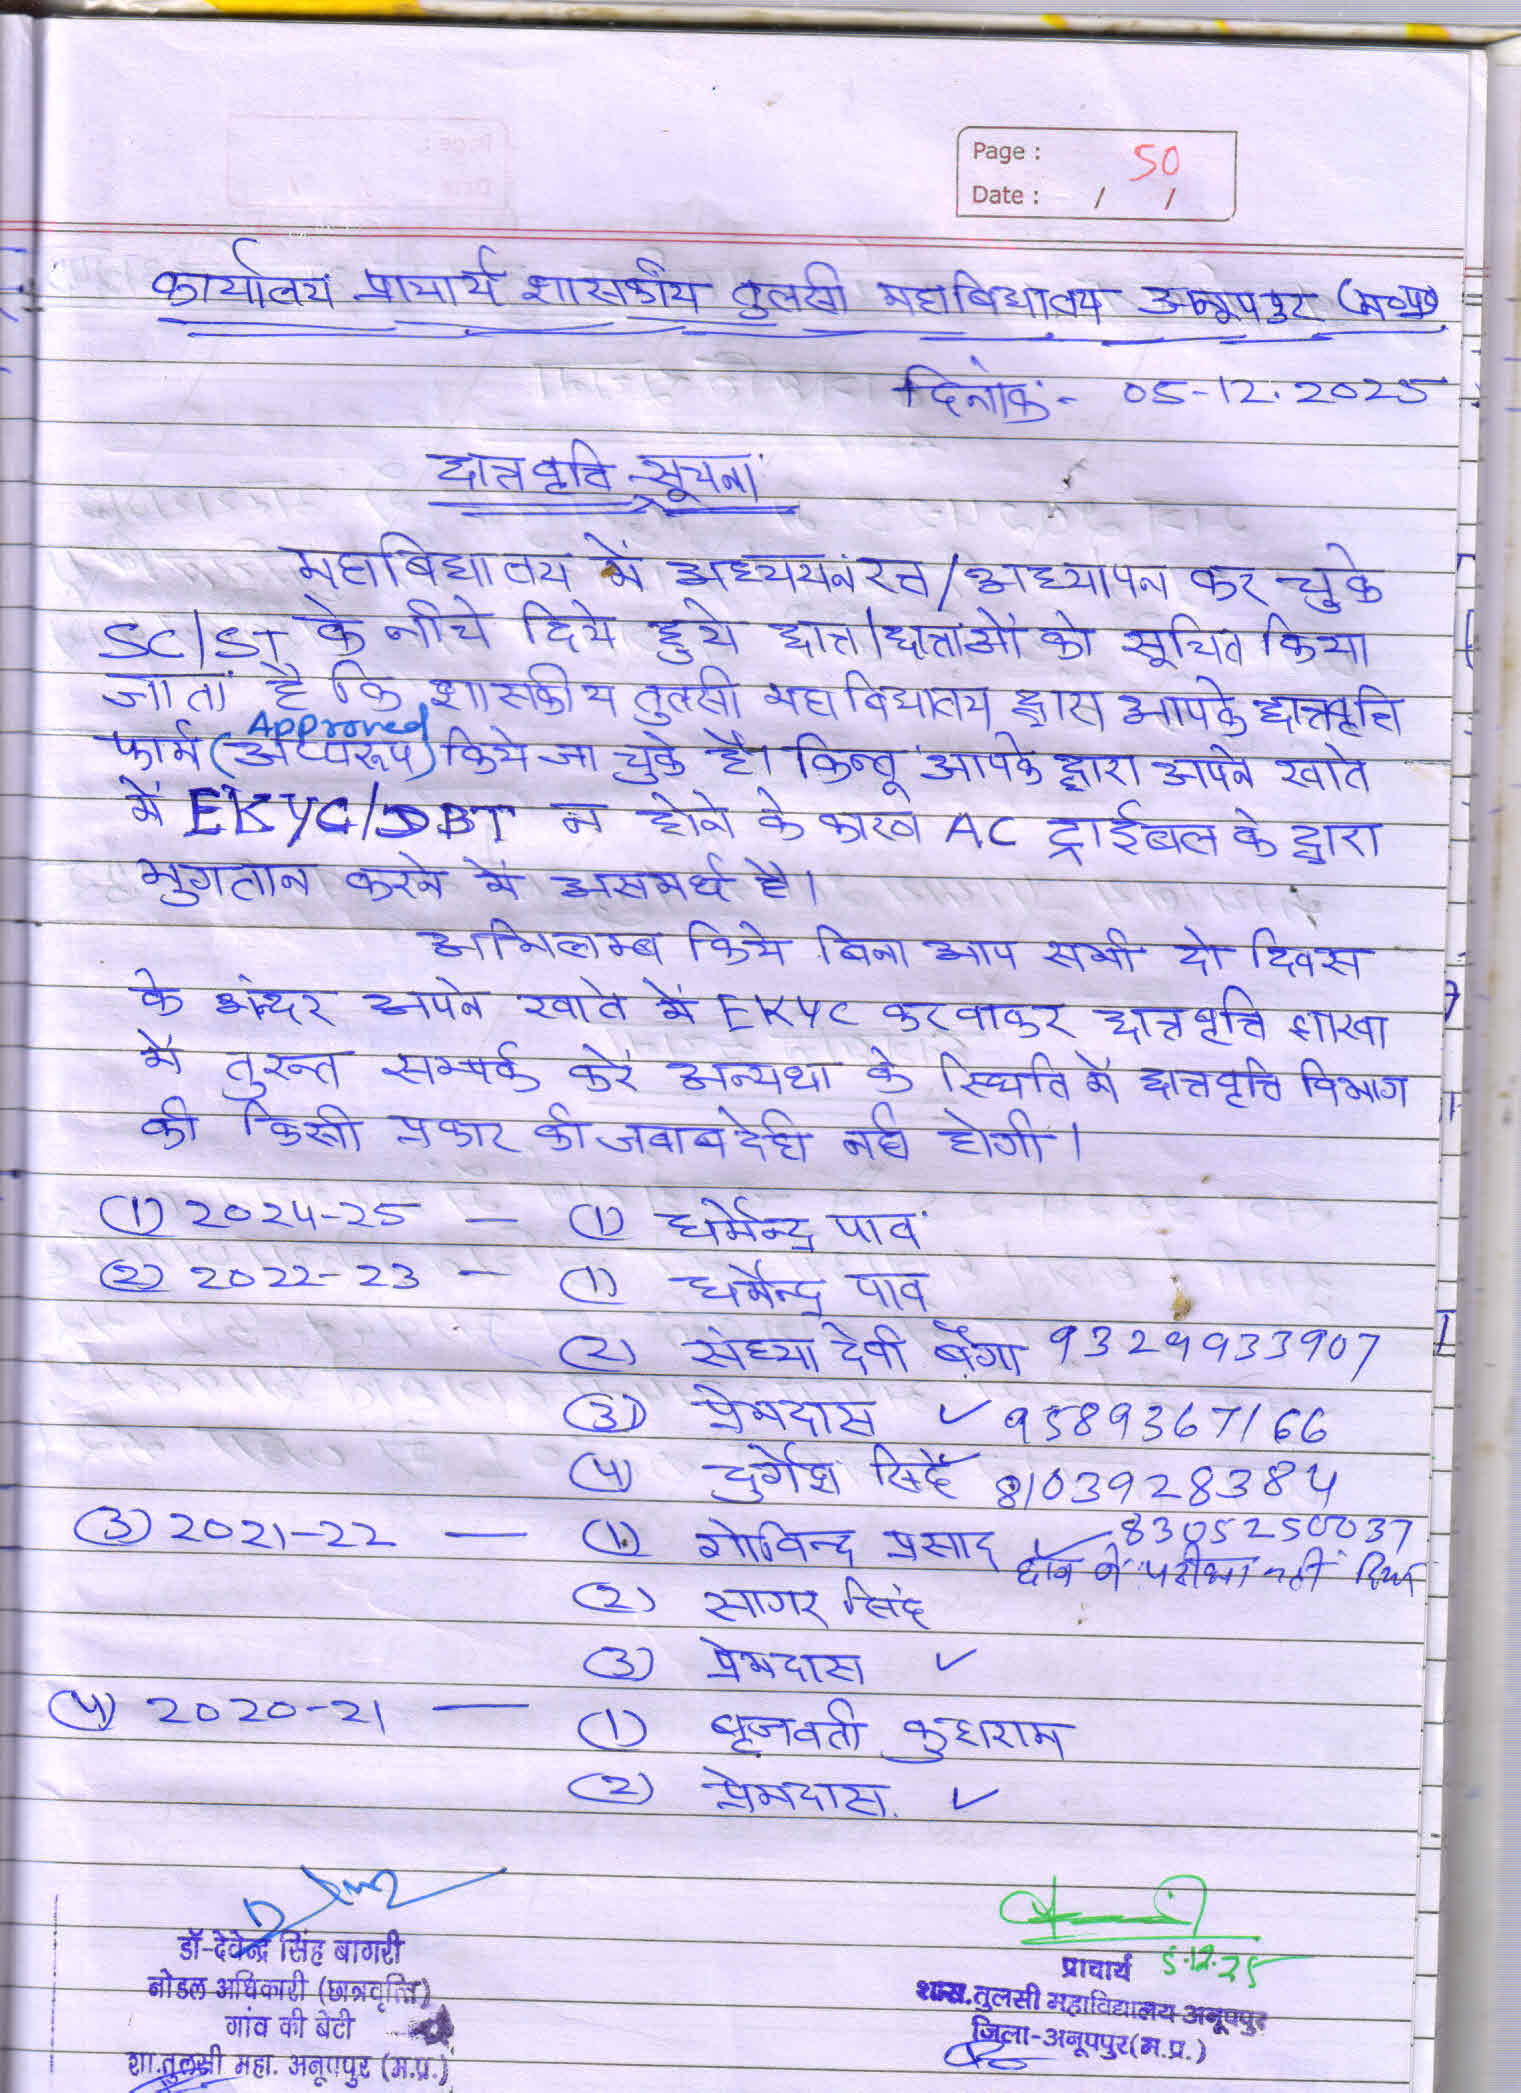 Page : 50
Date : / /
कार्यालय प्राचार्य शासकीय तुलसी महाबिद्यालय अनूपपुर (म०प्र०)
दिनांक:- 05-12.2025
छात्रवृत्ति सूचना
महाबिद्यालय में अध्ययनरत/अध्यापन कर चुके
SC/ST के नीचे दिये हुये छात्र/छात्राओं को सूचित किया
जाता है कि शासकीय तुलसी महाविद्यालय द्वारा आपके छात्रवृत्ति
Approved
फार्म (अप्परूप) किये जा चुके है। किन्तू आपके द्वारा अपने खाते
में EKYC/DBT न होने के कारण AC ट्राईबल के द्वारा
भुगतान करने में असमर्थ है।
अभिलम्ब किये बिना आप सभी दो दिवस
के अंदर अपने खाते में EKYC करवाकर छात्रवृत्ति शाखा
में तुरन्त सम्पर्क करें अन्यथा के स्थिति में छात्रवृत्ति विभाग
की किसी प्रकार की जवाबदेही नही होगी।
(1) 2024-25 — (1) धर्मेन्द्र पाव
(2) 2022-23 — (1) धर्मेन्द्र पाव
(2) संध्या देवी बैगा 9329933907
(3) प्रेमदास ✓ 9589367166
(4) दुर्गेश सिंह 8103928384
(3) 2021-22 — (1) गोविन्द प्रसाद ✓ 8305250037
छात्र ने परीक्षा नहीं दिया
(2) सागर सिंह
(3) प्रेमदास ✓
(4) 2020-21 — (1) बृजवती कुशराम
(2) प्रेमदास. ✓
डॉ-देवेन्द्र सिंह बागरी
नोडल अधिकारी (छात्रवृत्ति)
गांव की बेटी
शा.तुलसी महा. अनूपपुर (म.प्र.)
प्राचार्य 5.12.25
शास.तुलसी महाविद्यालय अनूपपुर
जिला-अनूपपुर(म.प्र.)